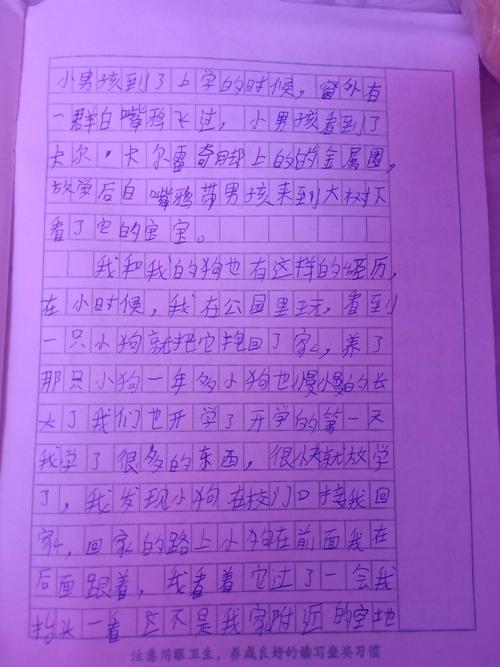 小男孩到了上学的时候，窗外有
一群白嘴鸦飞过，小男孩看到了
卡尔·卡尔雷奇脚上的的金属圈，
放学后白嘴鸦带男孩来到大树下
看了它的宝宝。
我和我的狗也有这样的经历，
在小时候，我在公园里玩，看到
一只小狗就把它抱回了家，养了
那只小狗一年多小狗也慢慢的长
大了我们也开学了开学的第一天
我学了很多的东西，很快就放学
了，我发现小狗在校门口接我回
家，回家的路上小狗在前面我在
后面跟着，我看着它过了一会我
抬头一看这不是我家附近的空地
注意用眼卫生，养成良好的读写坐姿习惯